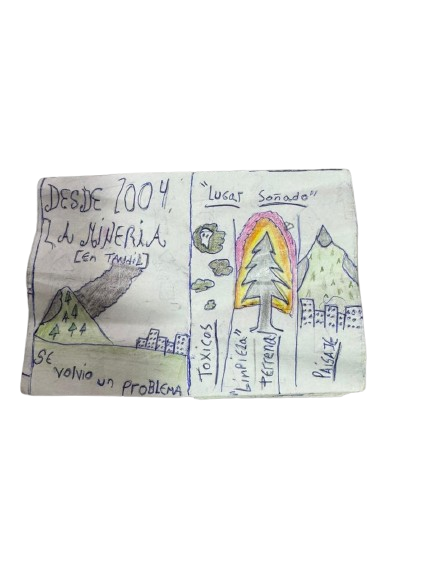 DESDE 2004,
LA MINERIA
[En TANDIL]
SE
volvio un PROBLEMA
"LUGAR Soñado"
TOXICOS
"LIMPIEZA"
terrena
PAISAJE